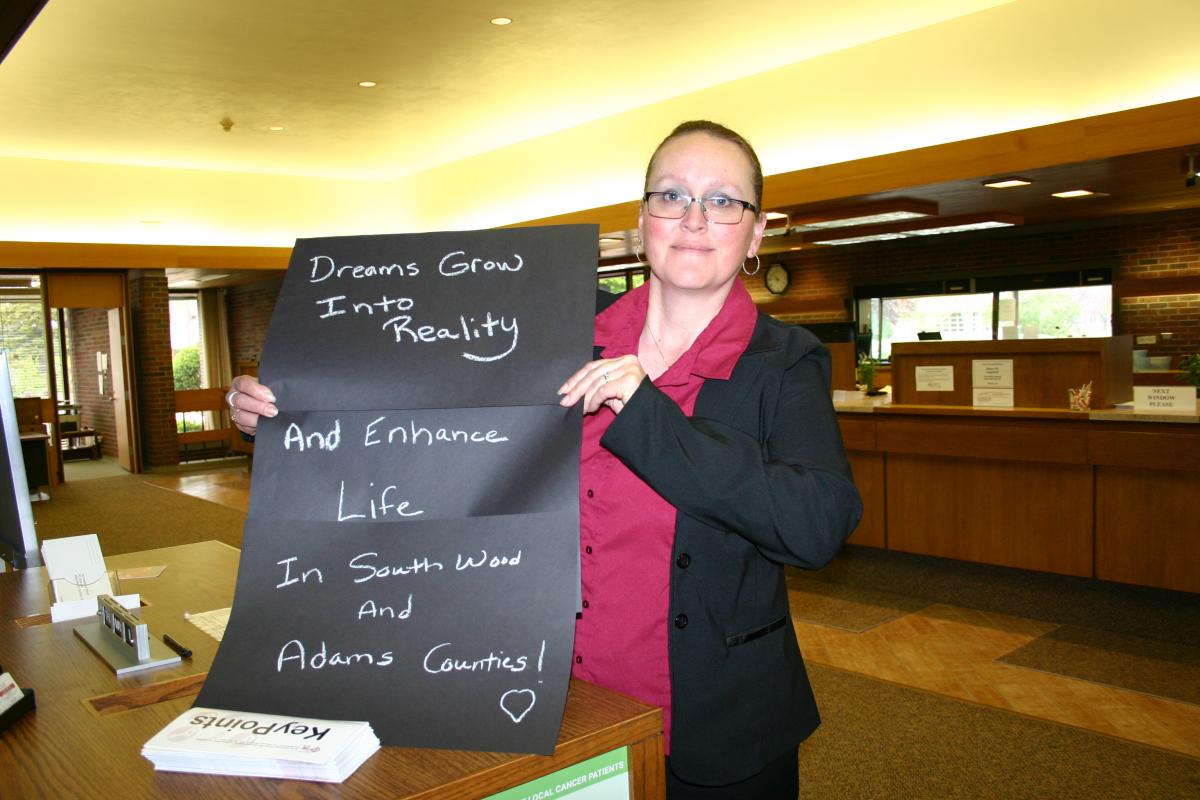 Dreams Grow
Into
Reality
And Enhance
Life
In South Wood
And
Adams Counties!
KeyPoints
LOCAL CANCER PATIENTS
NEXT
WINDOW
PLEASE